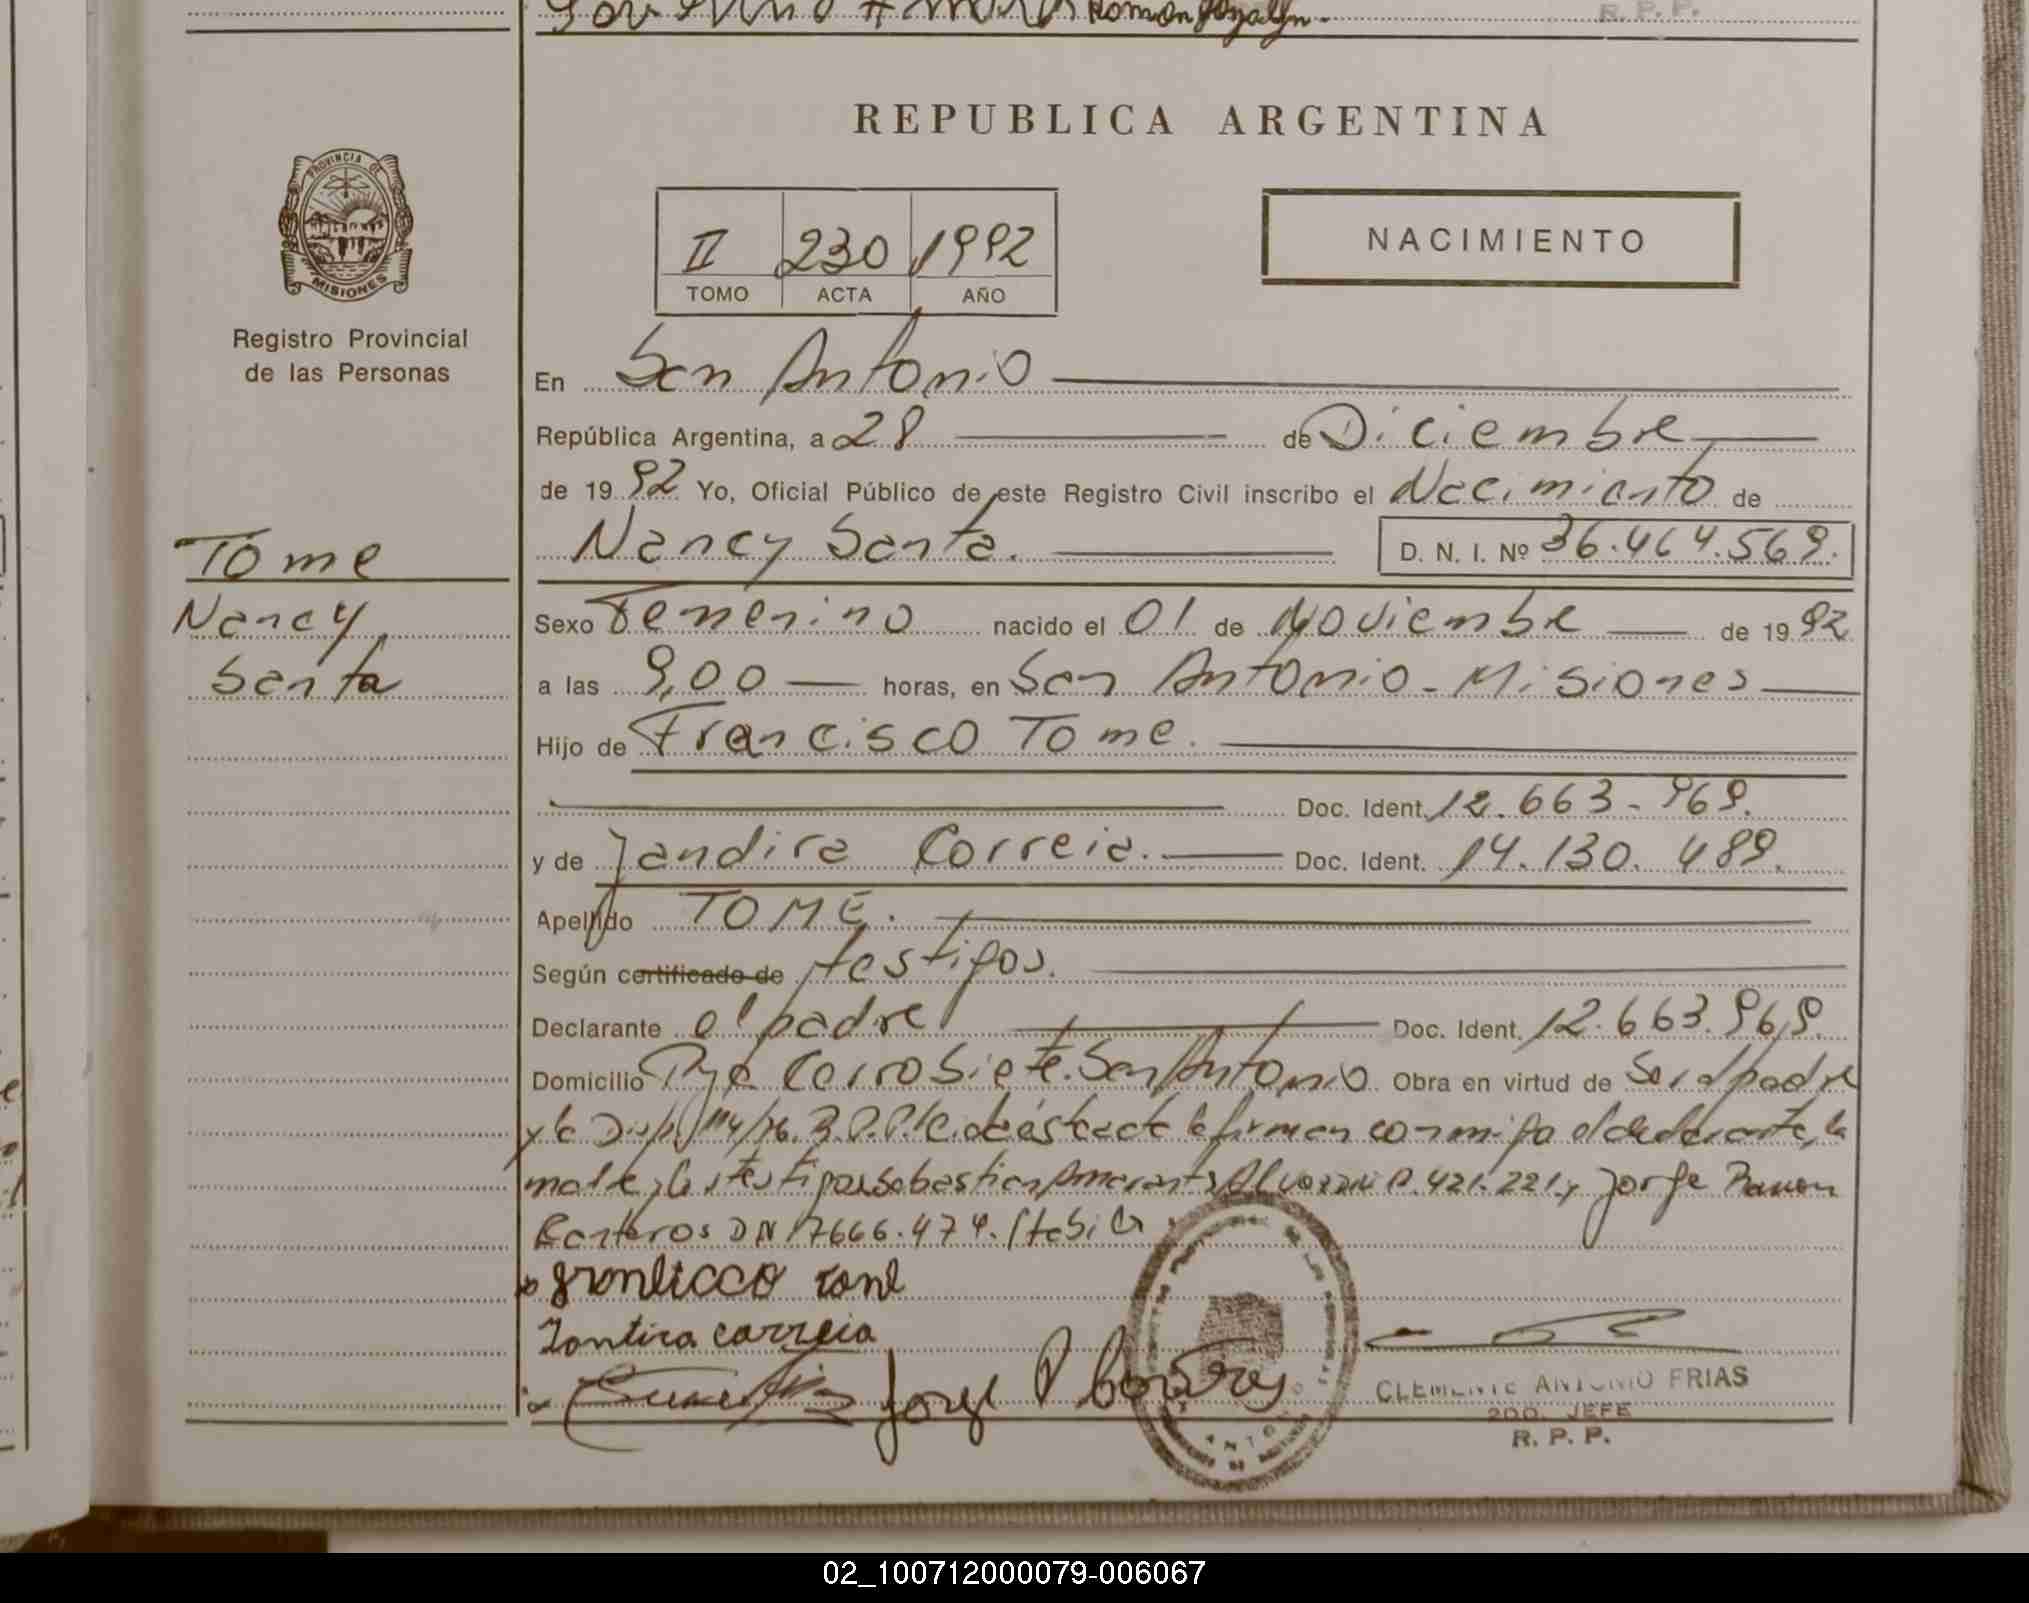 Ramon
R. P. P.
REPUBLICA ARGENTINA
PROVINCIA DE
MISIONES
II 230 1992
TOMO ACTA AÑO
NACIMIENTO
Registro Provincial
de las Personas
En San Antonio
República Argentina, a 28 de Diciembre
de 19 92 Yo, Oficial Público de este Registro Civil inscribo el Nacimiento de
Nancy Santa. D. N. I. Nº 36.464.569.
Tome
Nancy
Santa
Sexo Femenino nacido el 01 de Noviembre de 19 92
a las 9,00 horas, en San Antonio - Misiones
Hijo de Francisco Tome.
Doc. Ident. 12.663.969.
y de Jandira Correia. Doc. Ident. 14.130.489.
Apellido TOME.
Según certificado de testigos.
Declarante el padre Doc. Ident. 12.663.969.
Domicilio Pje Cerro Siete. San Antonio Obra en virtud de Ser el padre
y la 114/76. R.P.P. firman conmigo el declarante, la
madre y los testigos Sebastian 421.221. y Jorge Ramon
DNI 7666.474.
Tome
Jantira correia
Jorge R
CLEMENTE ANTONIO FRIAS
2DO. JEFE
R. P. P.
02_100712000079-006067